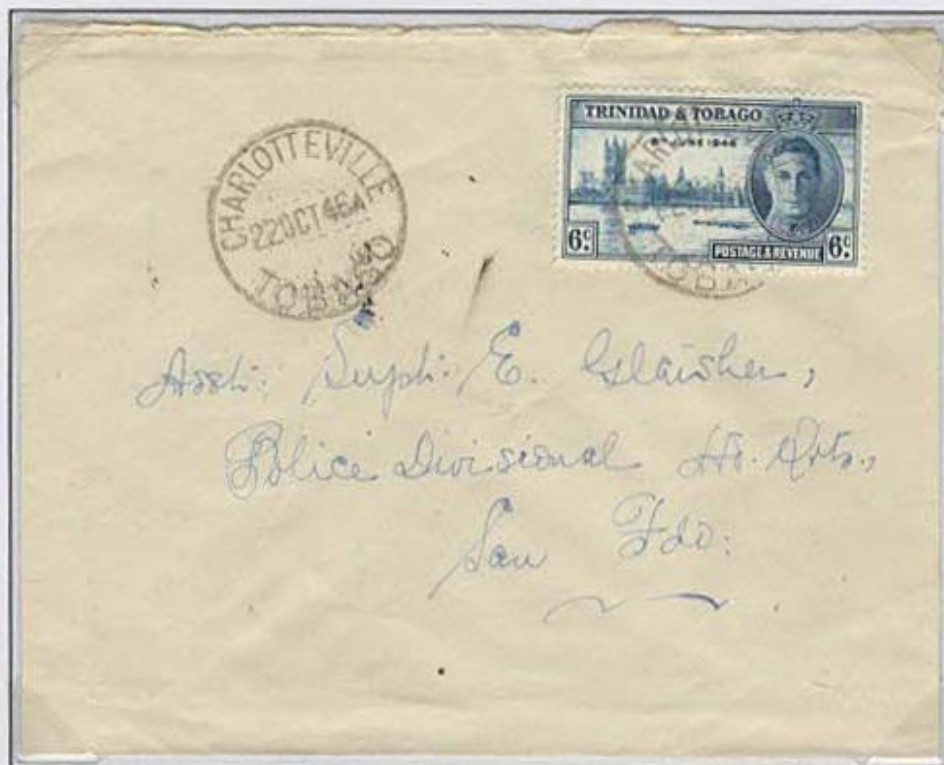 CHARLOTTEVILLE
22 OCT 46
TOBAGO
TRINIDAD & TOBAGO
8TH JUNE 1946
6c POSTAGE & REVENUE 6c
Asst: Supt: E. Glaisher,
Police Divisional Hd. Qrts.,
San Fdo: